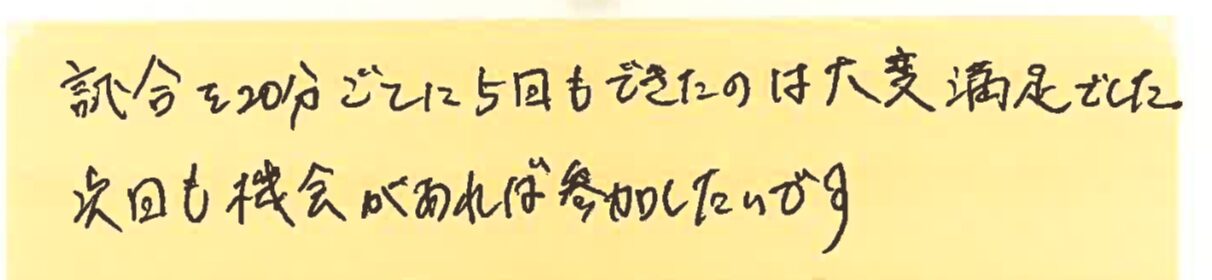 試合を20分ごとに5回もできたのは大変満足でした
次回も機会があれば参加したいです